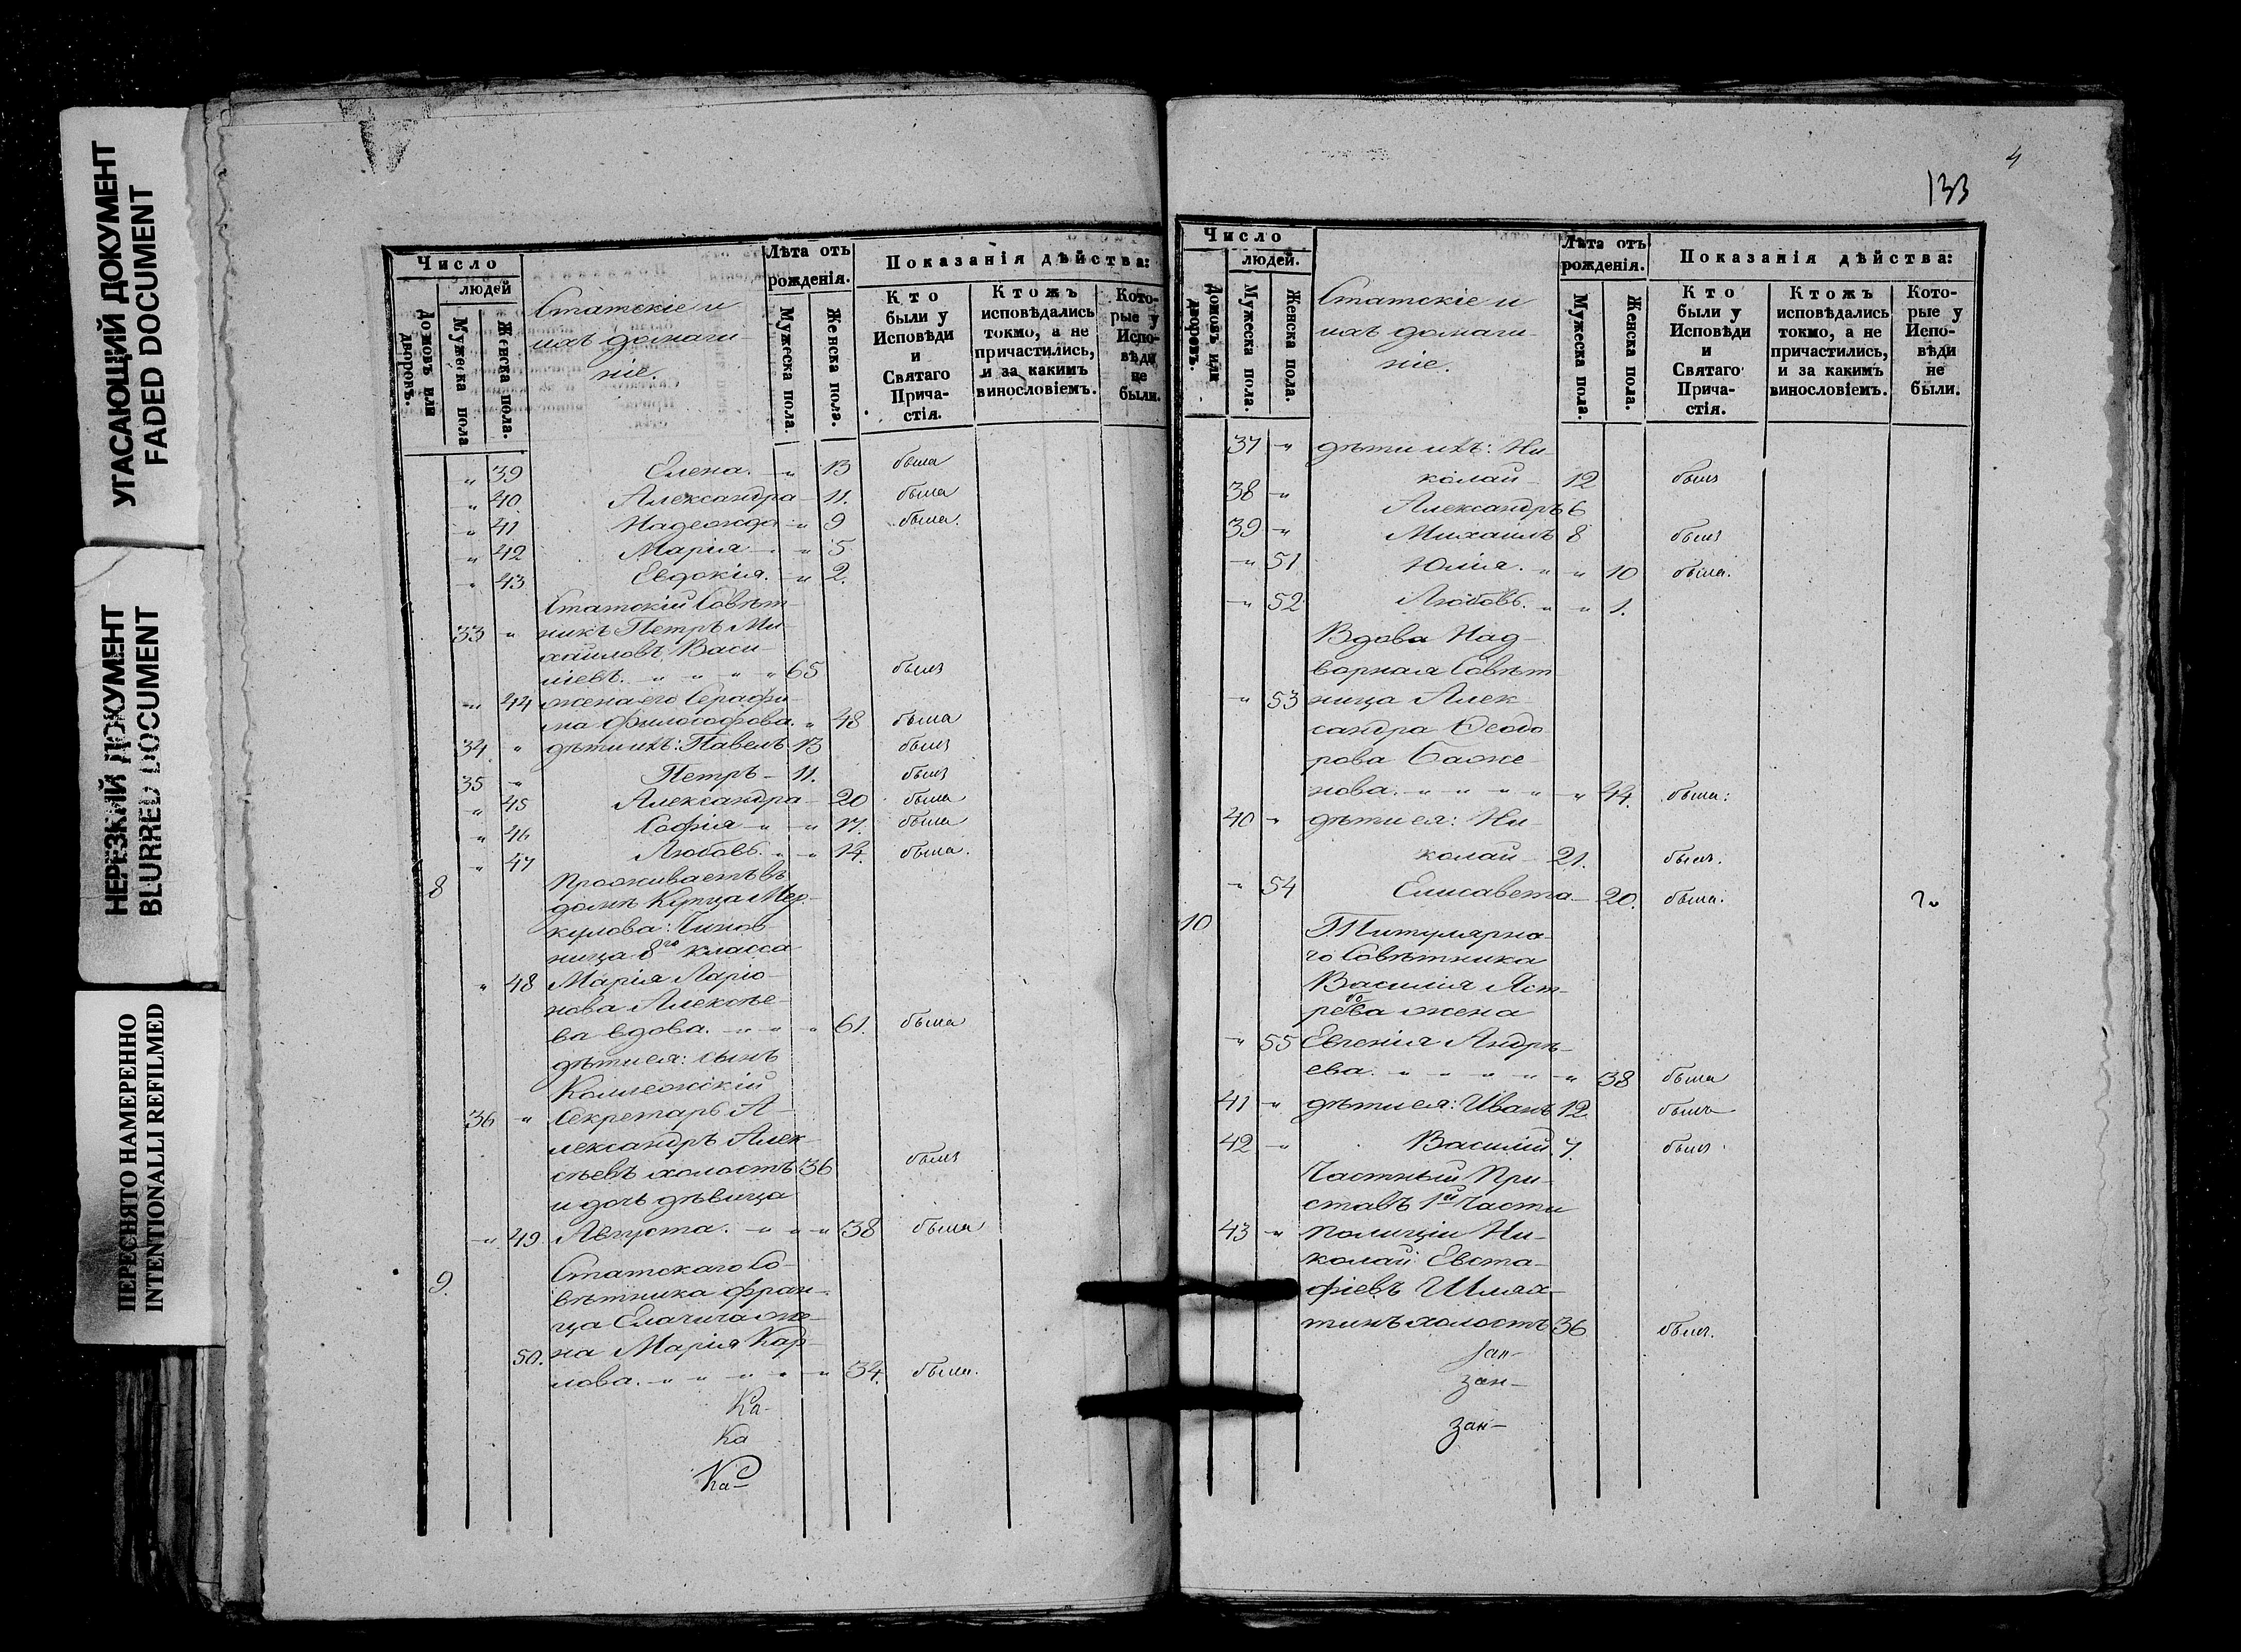 УГАСАЮЩИЙ ДОКУМЕНТ
FADED DOCUMENT
НЕРЕЗКИЙ ДОКУМЕНТ
BLURRED DOCUMENT
ПЕРЕСНЯТО НАМЕРЕННО
INTENTIONALLI REFILMED
Число
людей
Домовъ или дворовъ.
Мужеска пола
Женска пола.
Статскіе и
ихъ домаш-
ніе.
Лѣта отъ
рожденія.
Мужеска пола.
Женска пола.
Показанія дѣйства:
Кто были у Исповѣди и Святаго Прича-стія.
Ктожъ исповѣдались токмо, а не причастились, и за какимъ винословіемъ.
Кото-рые у Испо-вѣди не были.
„ 39 Елена. „ 13 была
„ 40 Александра 11. была
„ 41 Надежда „ 9 была.
„ 42 Марія „ 5
„ 43 Евдокія. „ 2.
Статскій Совѣт-
33 „ никъ Петръ Ми-
хаиловъ Васи-
ліевъ. „ „ „ „ 65 былъ
„ 44 жена его Серафи-
ма Философова. „ 48 была
34. „ дѣти ихъ: Павелъ 13 былъ
35 „ Петръ 11. былъ
„ 45 Александра 20 была
„ 46 Софія „ „ 17. была
„ 47 Любовь. „ „ 14. была.
8 Проживаетъ въ
домѣ Купца Мер-
кулова: Чинов-
ница 8го класса
„ 48 Марія Ларіо-
нова Алексѣе-
ва вдова. „ „ „ 61. была
дѣти ея: сынъ
Коллежскій
36 „ Секретарь А-
лександръ Алек-
сѣевъ холостъ 36 былъ
и дочь дѣвица
„ 49. Августа. „ „ „ 38 была
9. Статскаго Со-
вѣтника Фран-
ца Елачича же-
50. на Марія Кар-
лова. „ „ „ „ „ 34. была.
Ка-
Ка
Ка
4
133
Число
людей.
Домовъ или дворовъ.
Мужеска пола.
Женска пола.
Статскіе и
ихъ домаш-
ніе.
Лѣта отъ
рожденія.
Мужеска пола.
Женска пола.
Показанія дѣйства:
Кто были у Исповѣди и Святаго Прича-стія.
Ктожъ исповѣдались токмо, а не причастились, и за какимъ винословіемъ.
Кото-рые у Испо-вѣди не были.
37 „ дѣти ихъ: Ни-
колай 12 былъ
38 „ Александръ 6
39 „ Михаилъ 8 былъ
„ 51 Юлія. „ „ 10 была.
„ 52 Любовь. „ „ 1.
Вдова Над-
ворная Совѣт-
„ 53 ница Алек-
сандра Ѳеодо
рова Баже-
нова. „ „ „ „ „ 44. была:
40 „ дѣти ея: Ни-
колай 21. былъ.
„ 54 Елисавета 20. была.
10 Титулярна-
го Совѣтника
Василія Яст-
ребова жена
„ 55 Евгенія Андрѣ-
ева. „ „ „ „ „ 38 была
41 „ дѣти ея: Иванъ 12. былъ
42 „ Василій. 7. былъ
Частный При-
ставъ 1й Части
43 „ полиціи Ни-
колай Евста-
фіевъ Шлях-
тинъ холостъ 36 былъ.
зан-
зан-
зан-